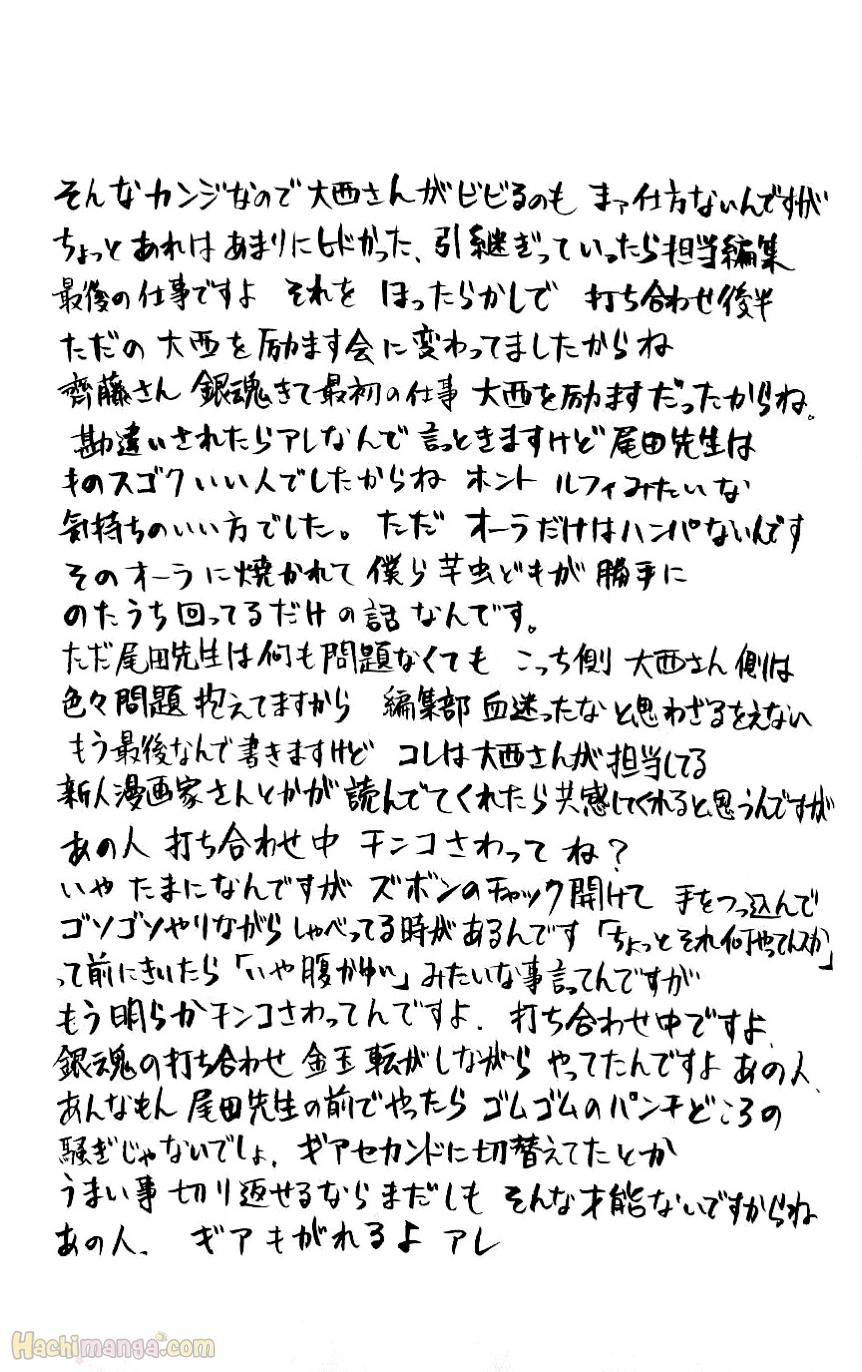 そんなカンジなので大西さんがビビるのも まァ仕方ないんですが
ちょっと あれは あまりにヒドかった、引継ぎっていったら担当編集
最後の仕事ですよ それを ほったらかしで 打ち合わせ後半
ただの 大西を励ます会に変わってましたからね
齊藤さん 銀魂きて最初の仕事 大西を励ますだったからね。
勘違いされたらアレなんで言っときますけど尾田先生は
ものスゴクいい人でしたからね ホント ルフィみたいな
気持ちのいい方でした。ただ オーラだけはハンパないんです
そのオーラに焼かれて 僕ら芋虫どもが 勝手に
のたうち回ってるだけの話なんです。
ただ尾田先生は何も問題なくても こっち側 大西さん側は
色々問題抱えてますから 編集部血迷ったなと思わざるをえない
もう最後なんで書きますけど コレは大西さんが担当してる
新人漫画家さんとかが読んでてくれたら共感してくれると思うんですが
あの人 打ち合わせ中 チンコさわって ね?
いや たまになんですが ズボンのチャック開けて 手をつっ込んで
ゴソゴソやりながら しゃべってる時があるんです「ちょっとそれ何やってんスか」
って前にきいたら「いや腹かゆい」みたいな事言ってんですが
もう明らかチンコさわってんですよ、打ち合わせ中ですよ、
銀魂の打ち合わせ 金玉転がしながら やってたんですよ あの人、
あんなもん 尾田先生の前でやったら ゴムゴムのパンチどころの
騒ぎじゃないでしょ、ギアセカンドに切替えてたとか
うまい事切り返せるならまだしも そんな才能ないですからね
あの人、 ギアもがれるよ アレ
Hachimanga.com